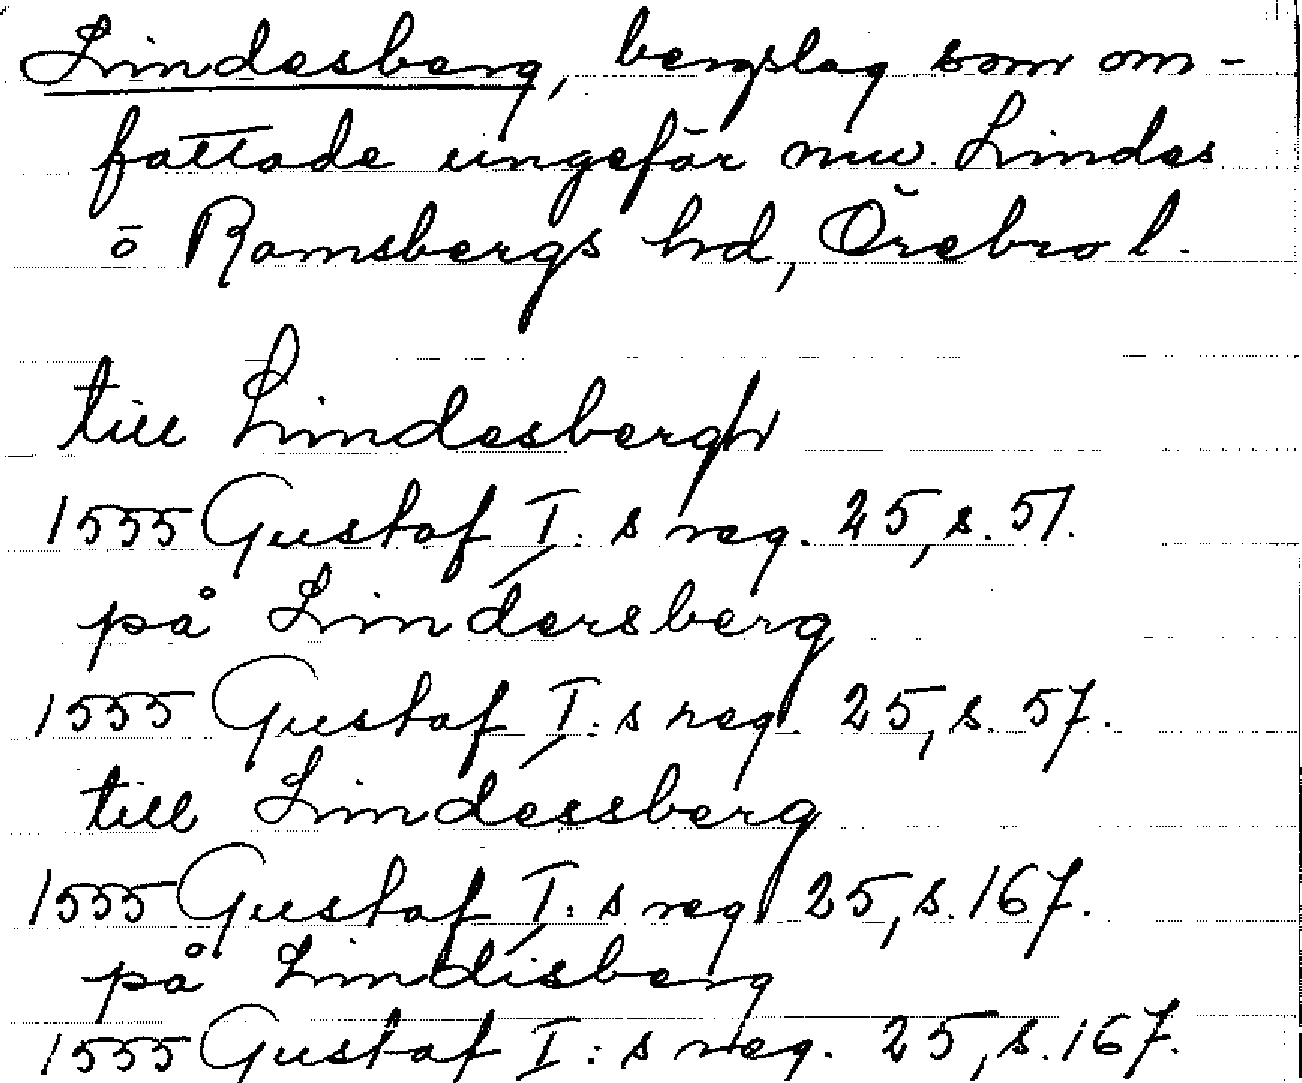 Lindesberg, bergslag som om-
fattade ungefär nuv. Lindes
o Ramsbergs hd, Örebro l.
till Lindesbergh
1555 Gustaf I:s reg. 25, s. 57.
på Lindersberg
1555 Gustaf I:s reg. 25, s. 57.
till Lindessberg
1555 Gustaf I:s reg. 25, s. 167.
på Lindisberg
1555 Gustaf I:s reg. 25, s. 167.